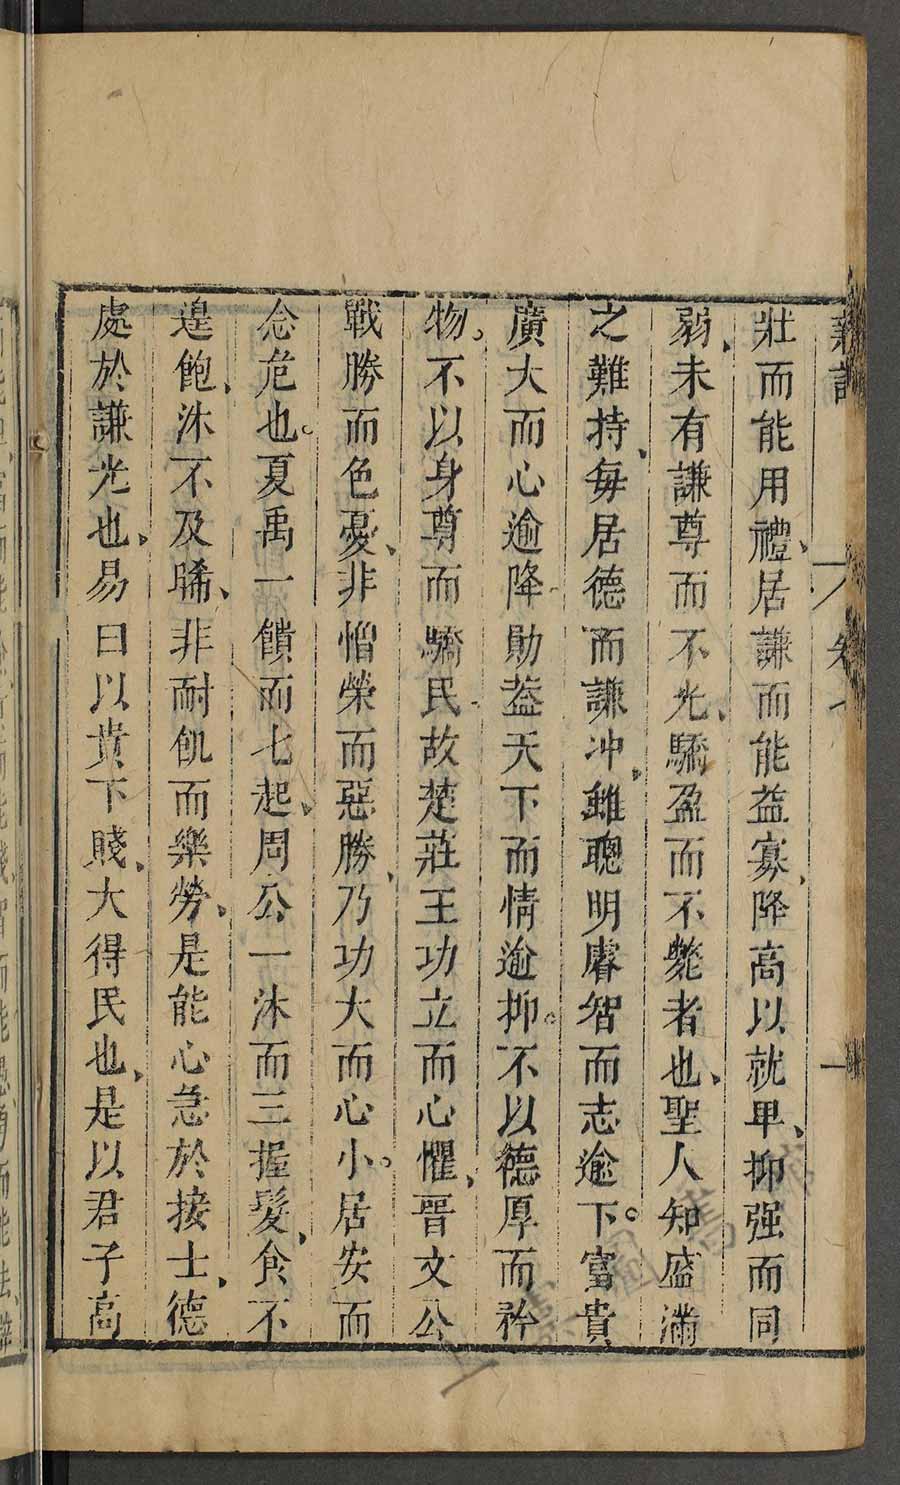 新論 卷七 一
壯而能用禮、居謙而能益寡、降高以就卑、抑强而同
弱、未有謙尊而不光、驕盈而不斃者也、聖人知盛滿
之難持、每居德而謙冲、雖聰明睿智而志逾下。富貴
廣大而心逾降、勛益天下而情逾抑。不以德厚而矜
物。不以身尊而驕民、故楚莊王功立而心懼、晉文公
戰勝而色憂、非憎榮而惡勝、乃功大而心小。居安而
念危也。夏禹一饋而七起、周公一沐而三握髮、食不
遑飽、沐不及晞、非耐飢而樂勞、是能心急於接士、德
處於謙光也、易曰以貴下賤、大得民也、是以君子高